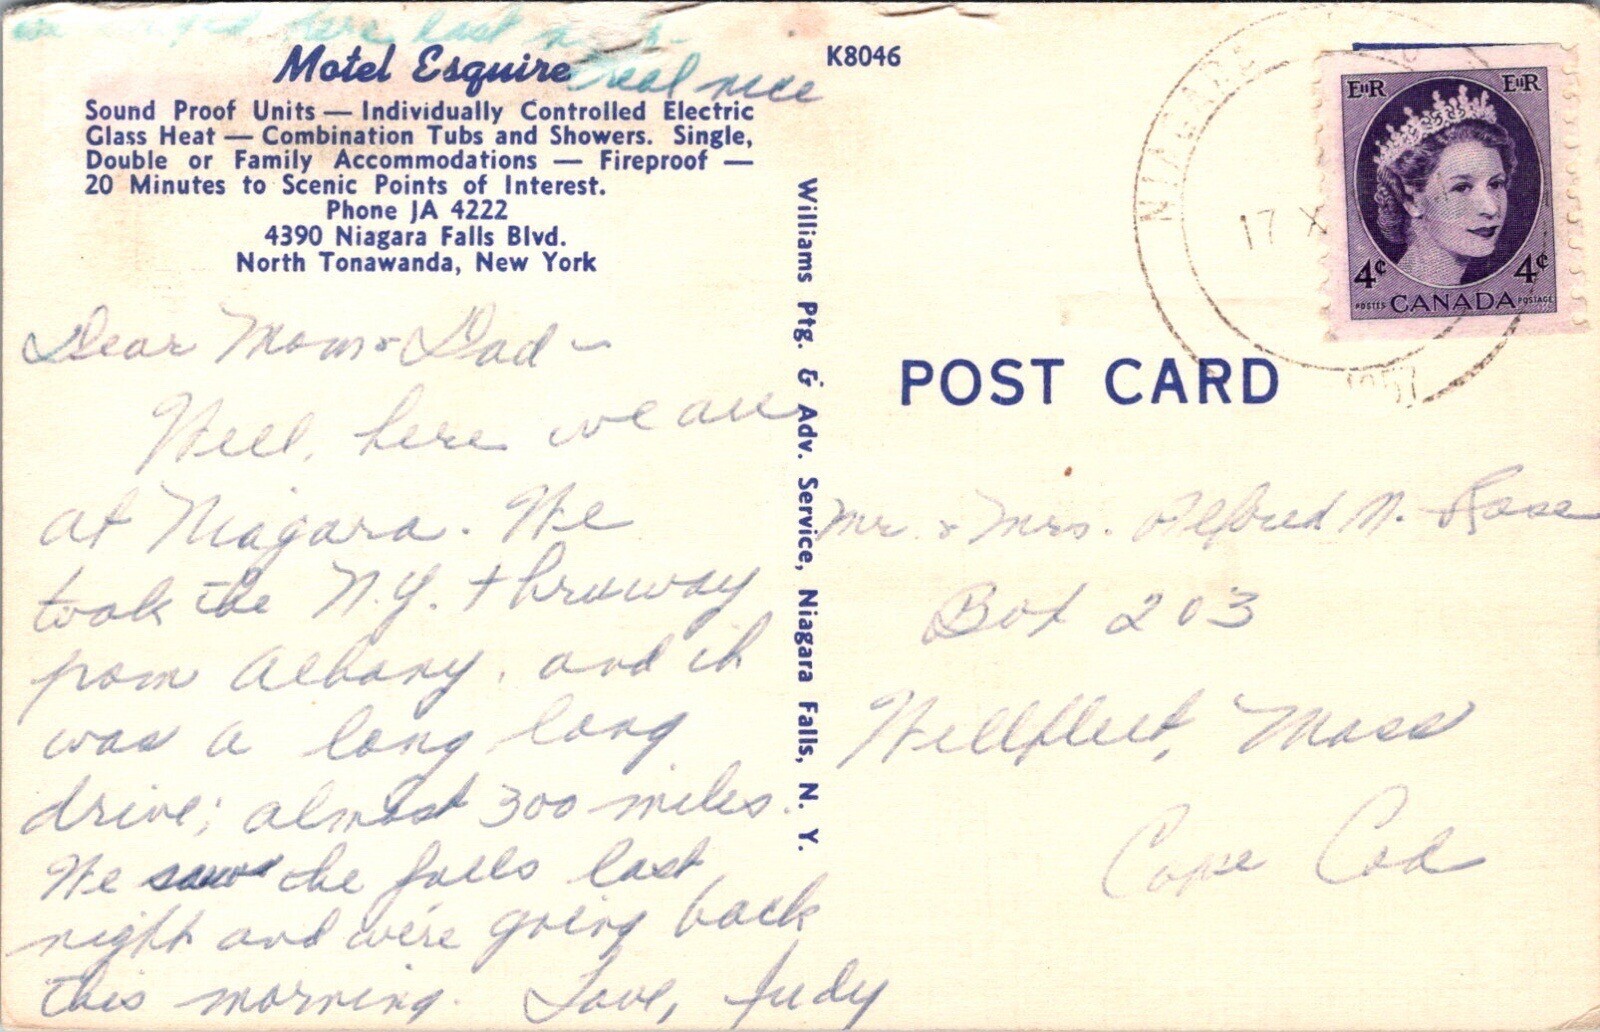 here last
real nice
Motel Esquire
Sound Proof Units — Individually Controlled Electric
Glass Heat — Combination Tubs and Showers. Single,
Double or Family Accommodations — Fireproof —
20 Minutes to Scenic Points of Interest.
Phone JA 4222
4390 Niagara Falls Blvd.
North Tonawanda, New York
Dear Mom & Dad —
Well, here we are
at Niagara. We
took the N.Y. thruway
from Albany, and it
was a long long
drive; almost 300 miles.
We saw the falls last
night and we're going back
this morning. Love, Judy
Williams Ptg. & Adv. Service, Niagara Falls, N. Y.
K8046
POST CARD
NIAGARA
17 X
1957
EIIR EIIR
4¢ 4¢
POSTES CANADA POSTAGE
Mr. & Mrs. Alfred N. Rose
Box 203
Wellfleet, Mass
Cape Cod